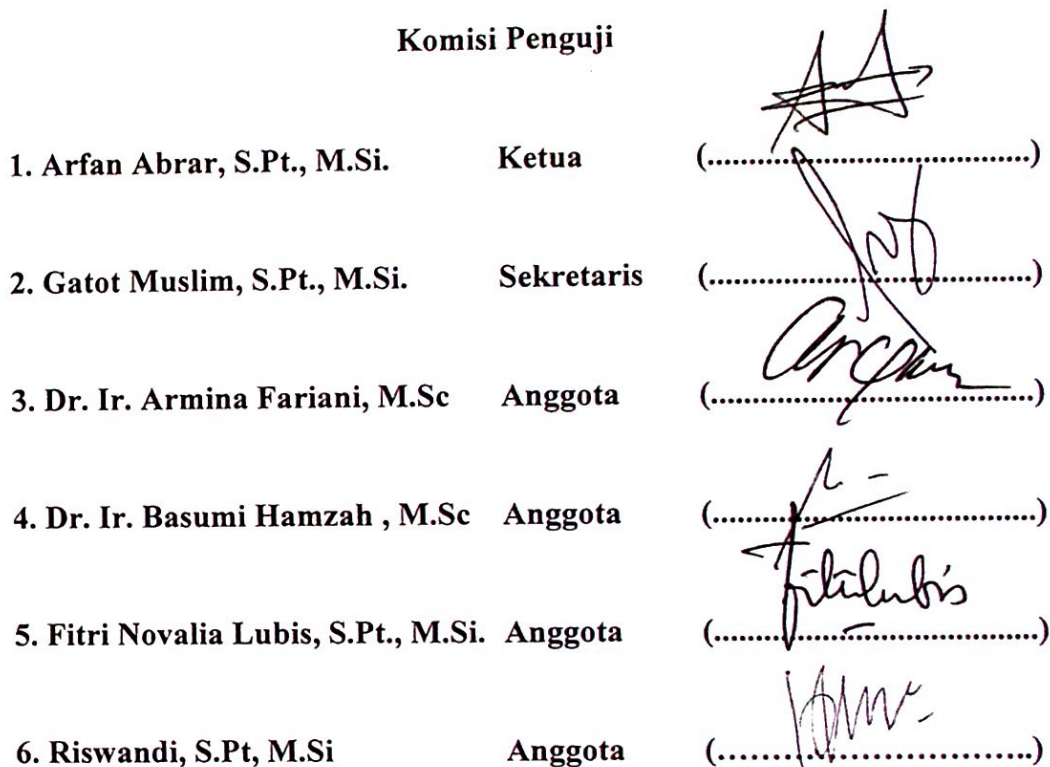 Komisi Penguji
1. Arfan Abrar, S.Pt., M.Si. Ketua (........................................)
2. Gatot Muslim, S.Pt., M.Si. Sekretaris (........................................)
3. Dr. Ir. Armina Fariani, M.Sc Anggota (........................................)
4. Dr. Ir. Basumi Hamzah , M.Sc Anggota (........................................)
fitrilubis
5. Fitri Novalia Lubis, S.Pt., M.Si. Anggota (........................................)
6. Riswandi, S.Pt, M.Si Anggota (........................................)